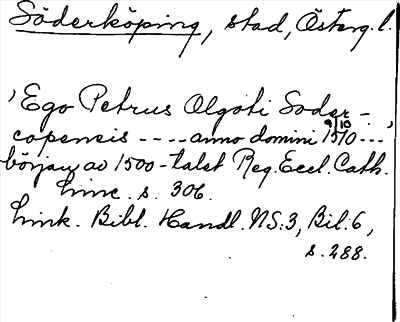 Söderköping, stad, Österg. l.
'Ego Petrus Olgoti Soder-
copensis ---- anno domini 1510 ---'
början av 1500-talet Reg. Eccl. Cath.
Linc. s. 306.
Link. Bibl. Handl. NS:3, Bil. 6,
s. 288.